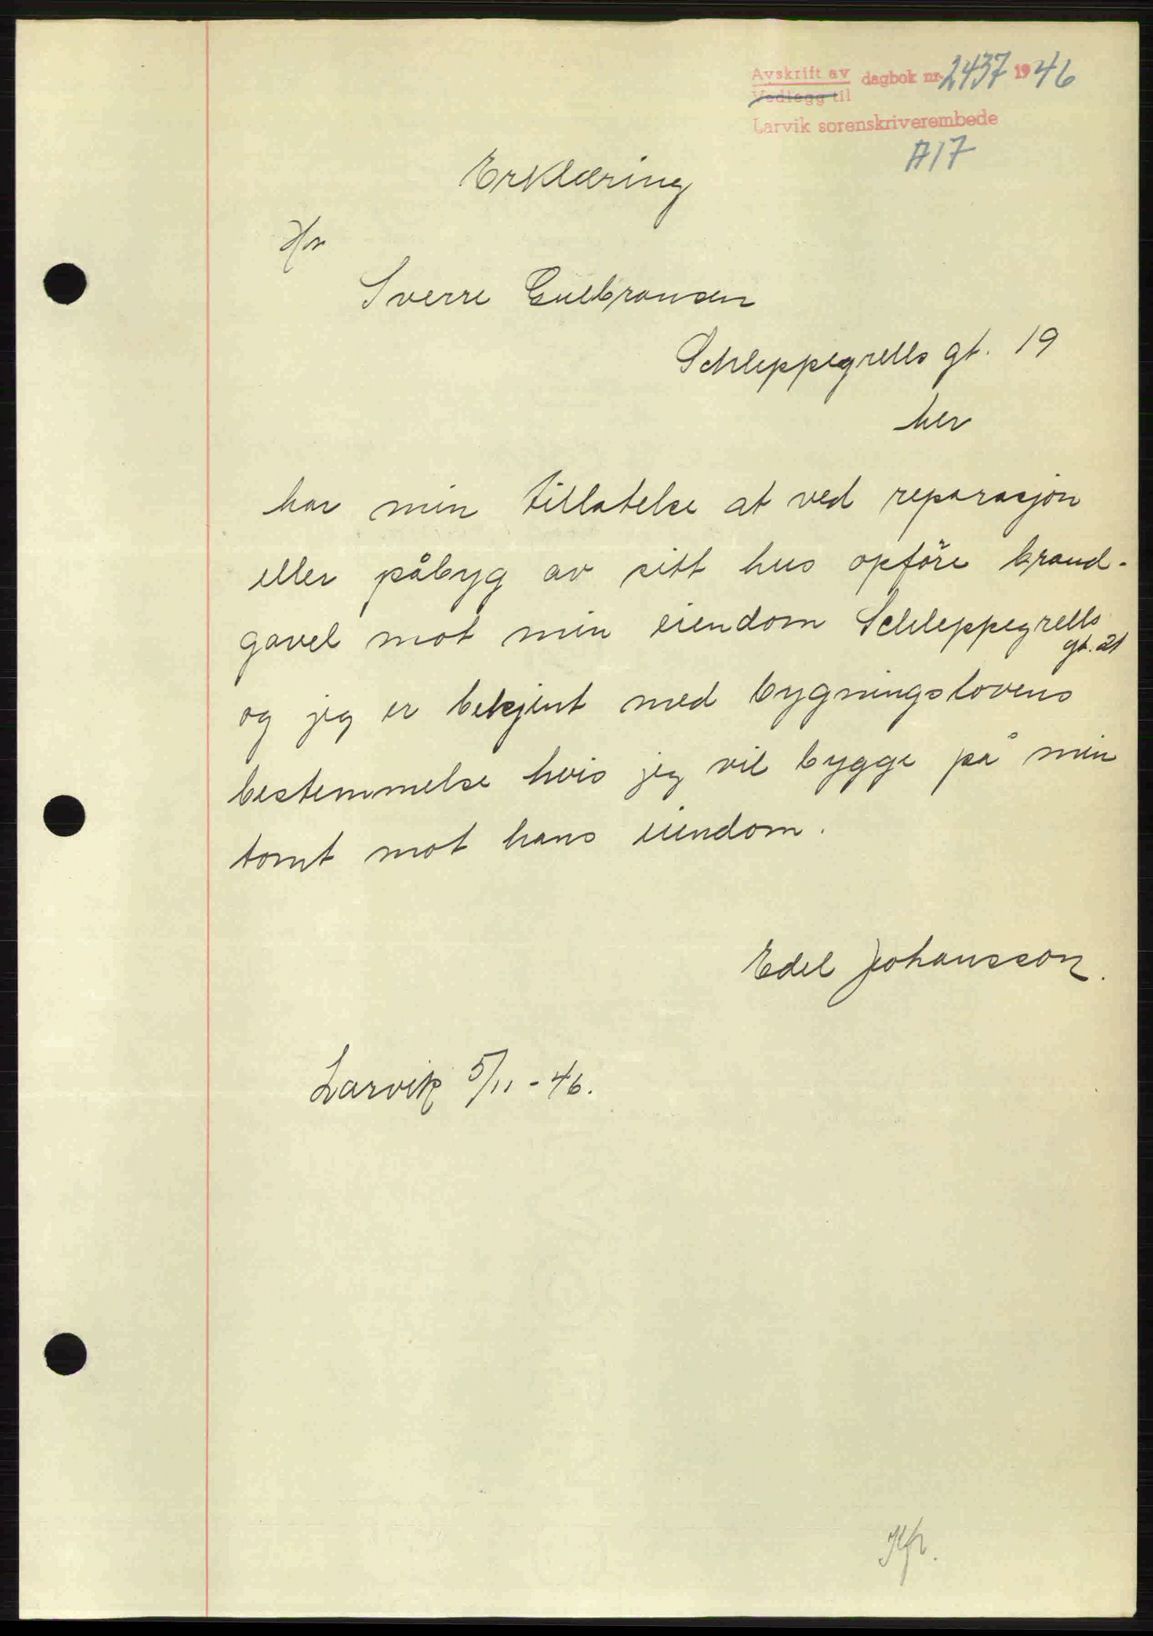 Avskrift av dagbok nr. 2437 1946
Vedlegg til
Larvik sorenskriverembede
A17
Erklæring
Hr
Sverre Gulbransen
Schleppegrells gt. 19
her
har min tillatelse at ved reparasjon
eller påbyg av sitt hus opføre brand-
gavel mot min eiendom Schleppegrells
gt. 21
og jeg er bekjent med bygningslovens
bestemmelse hvis jeg vil bygge på min
tomt mot hans eiendom.
Edel Johansson.
Larvik 5/11 - 46.